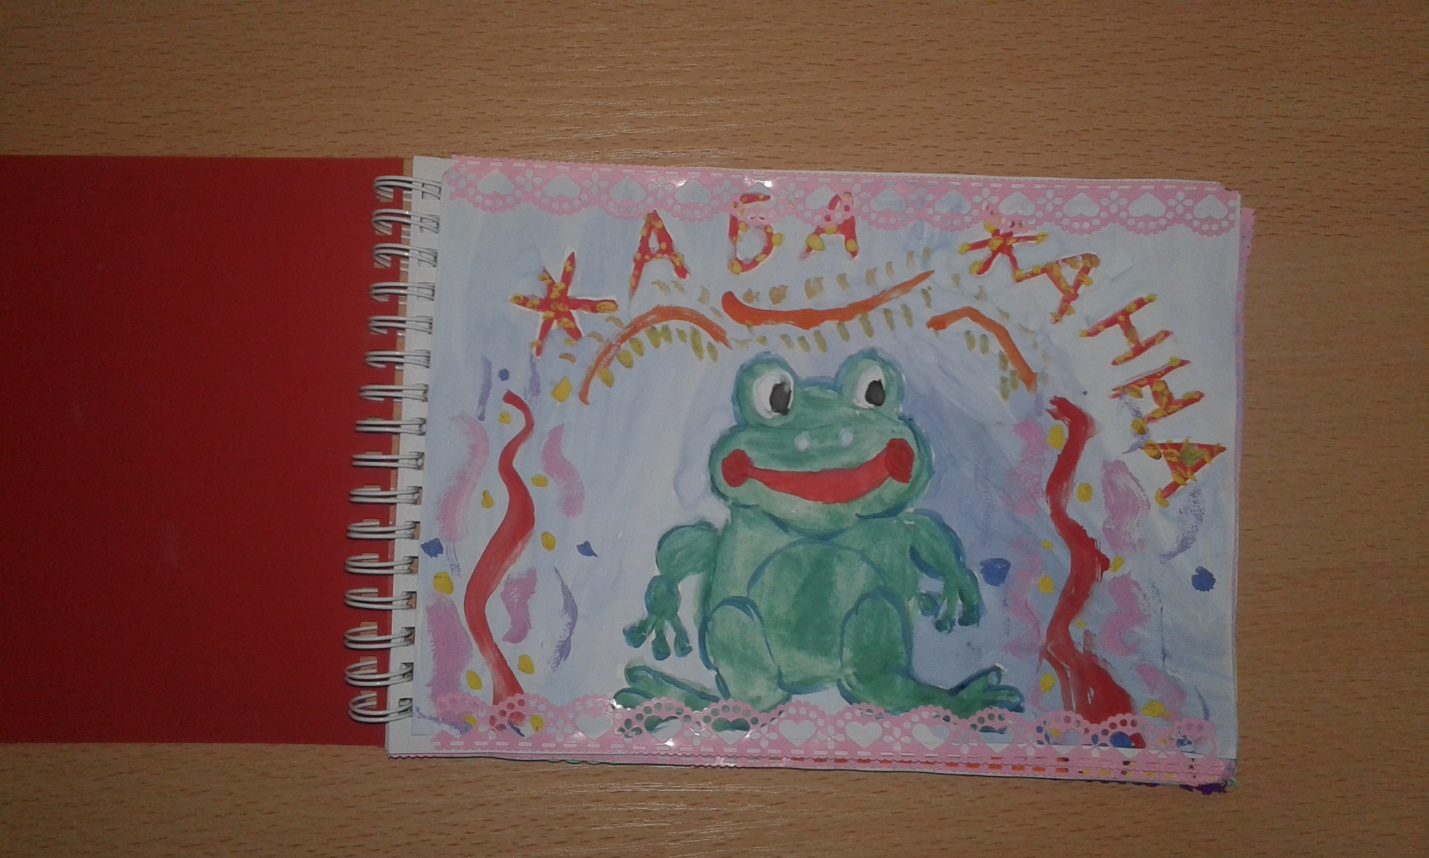 ЖАБА ЖАННА